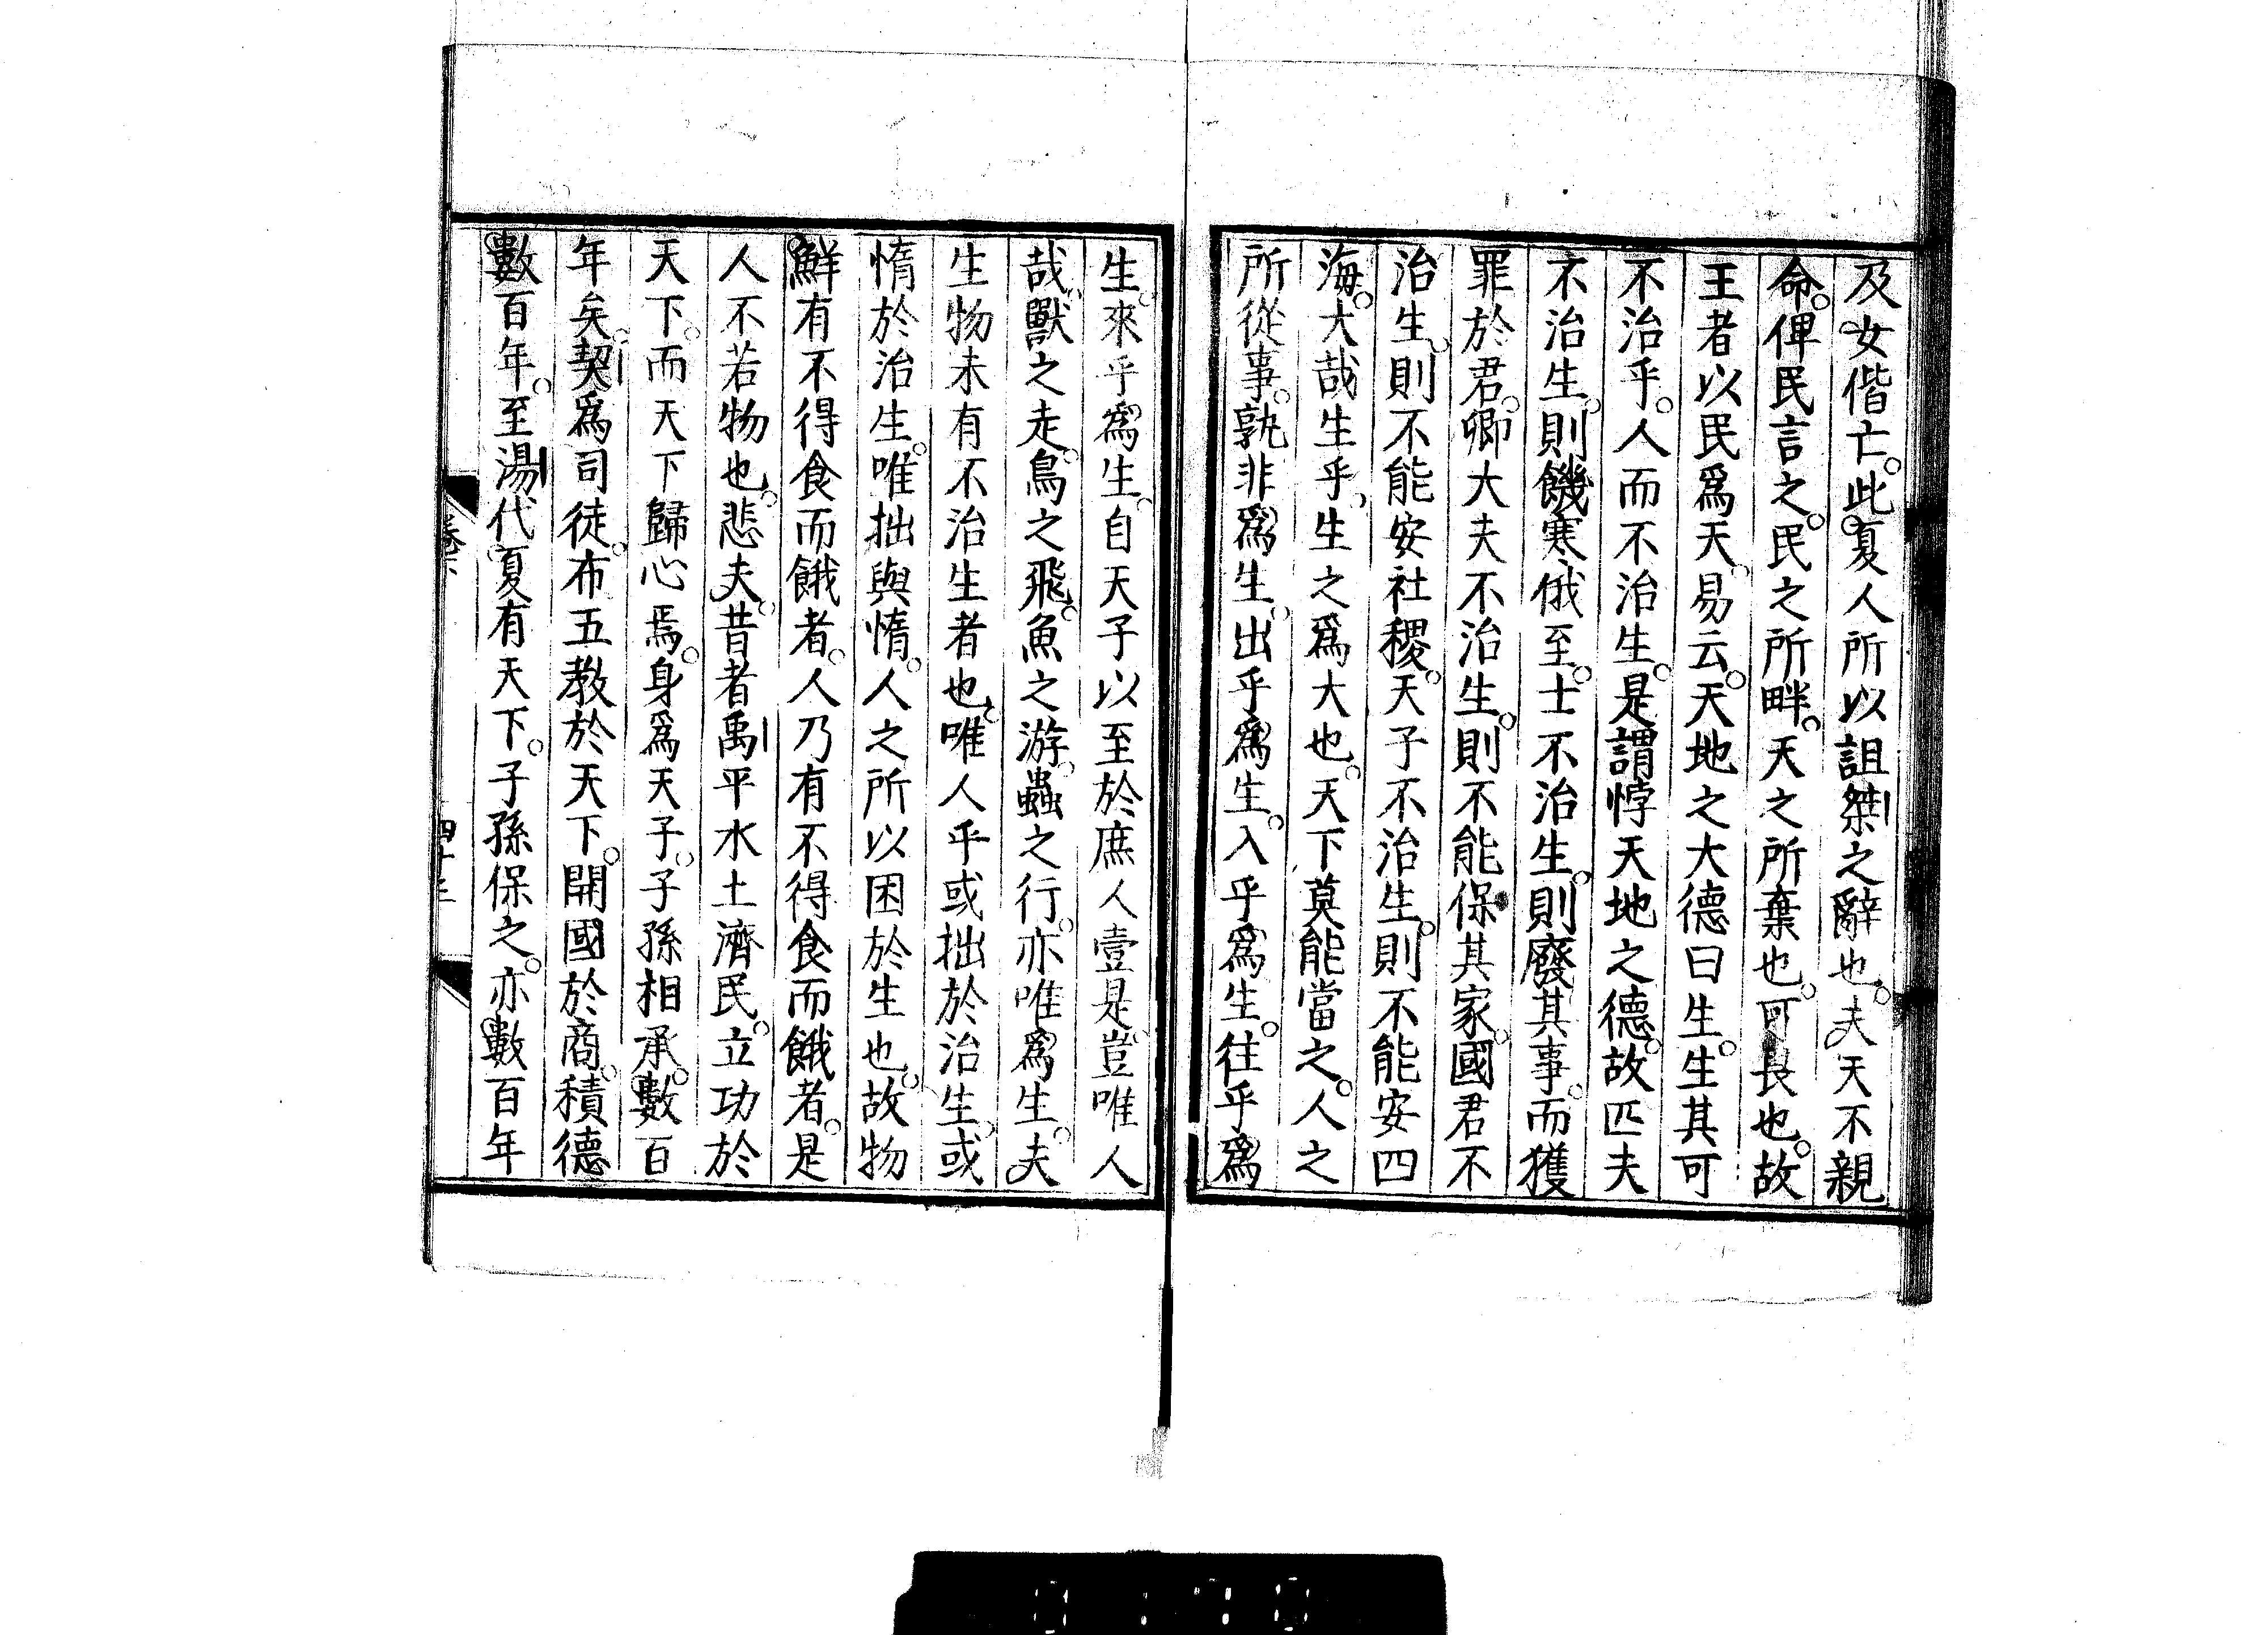 及女偕亡。此夏人所以詛桀之辭也。夫天不親
命。俾民言之。民之所畔。天之所棄也。可長也。故
王者以民爲天。易云。天地之大德曰生。生其可
不治乎。人而不治生。是謂悖天地之德。故匹夫
不治生。則饑寒俄至。士不治生。則廢其事。而獲
罪於君。卿大夫不治生。則不能保其家。國君不
治生。則不能安社稷。天子不治生。則不能安四
海。大哉生乎。生之爲大也。天下莫能當之。人之
所從事。孰非爲生。出乎爲生。入乎爲生。往乎爲
生。來乎爲生。自天子以至於庶人壹是。豈唯人
哉。獸之走。鳥之飛。魚之游。蟲之行。亦唯爲生。夫
生物未有不治生者也。唯人乎或拙於治生。或
惰於治生。唯拙與惰。人之所以困於生也。故物
鮮有不得食而餓者。人乃有不得食而餓者。是
人不若物也。悲夫。昔者禹平水土濟民。立功於
天下。而天下歸心焉。身爲天子。子孫相承。數百
年矣。契爲司徒。布五教於天下。開國於商。積德
數百年。至湯代夏有天下。子孫保之。亦數百年
卷下
四十三